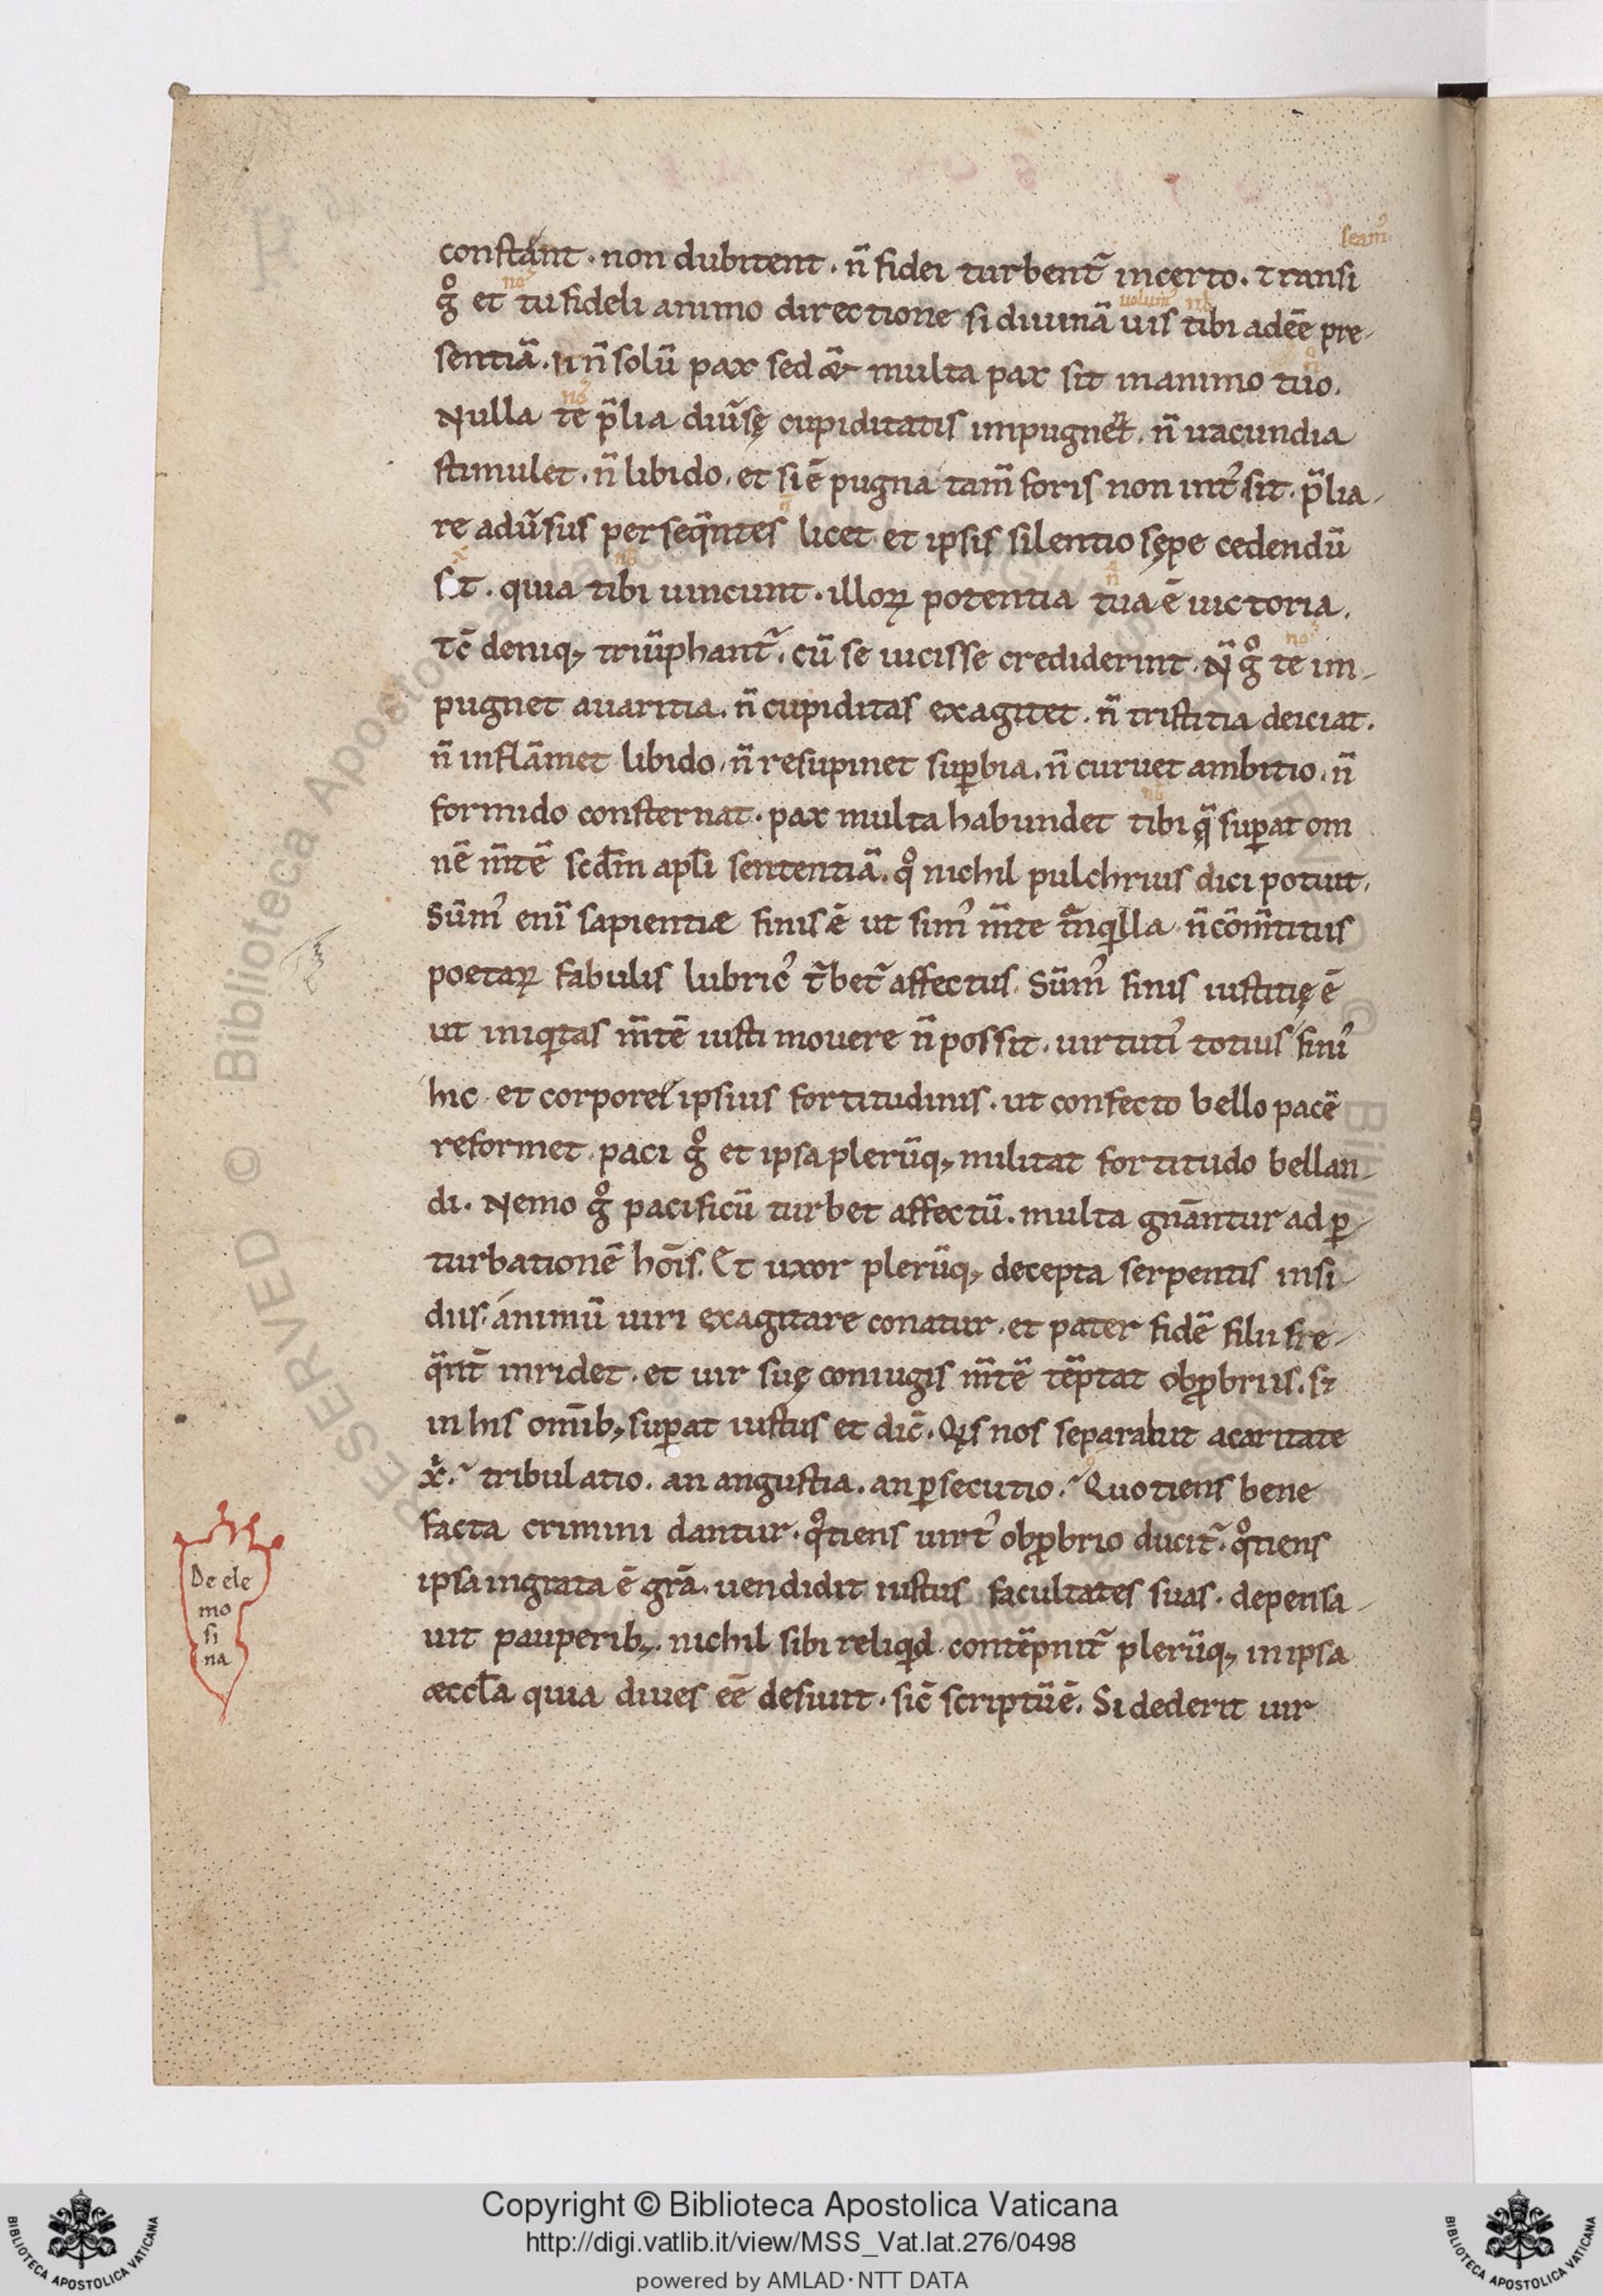 constant . non dubitent . n̄ fidei turbent᷑ incerto . transi
seam᷒
g̊ et tu fideli animo directione si diuinā uis tibi adēē pre-
no᷒
uolum᷒ nb̄
sentiā . ut n̄ solū pax sed & multa pax sit in animo tuo .
Nulla te p̄lia diūsę cupiditatis impugnet . n̄ iracundia
no᷒
stimulet . n̄ libido . et si ē pugna tam̄ foris non int᷒ sit . p̄lia-
re adūsus perseq̄ntes licet et ipsis silentio sępe cedendū
sit . quia tibi uincunt . illoꝝ potentia tua ē uictoria .
nb̄
tc̄ deniq; triūphant᷑ . cū se uicisse crediderint . N̄ g̊ te im-
no᷒
pugnet auaritia . n̄ cupiditas exagitet . n̄ tristitia deiciat .
n̄ inflāmet libido . n̄ resupinet suꝑbia . n̄ curuet ambitio . n̄
formido consternat . pax multa habundet tibi q̄ suꝑat om
nb̄
nē m̄tē scd̄m apl̄i sententiā . qͦ nichil pulchrius dici potuit .
Sūm᷒ eni᷑ sapientiæ finis ē ut sim᷒ m̄te tͣnqͥlla n̄ cōm̄titus
poetaꝝ fabulis lubric᷒ t᷑bet᷑ affectus . Sūm᷒ finis iustitię ē
ut iniqͥtas m̄tē iusti mouere n̄ possit . uirtuti᷒ totius fini᷒
hic . et corporei ipsius fortitudinis . ut confecto bello pacē
reformet . paci g̊ et ipsa plerūq; militat fortitudo bellan-
di . Nemo g̊ pacificū turbet affectū . multa gn̄antur ad ꝑ-
turbationē hōis . Et uxor plerūq; decepta serpentis insi-
diis . animū uiri exagitare conatur . et pater fidē filii fre-
q̄nt᷑ inridet . et uir suę coniugis m̄tē tēptat obꝓbriis . s;
in his omīb; suꝑat iustus et dic̄ . Qͥs nos separabit a caritate
x̄ . tribulatio . an angustia . an ꝑsecutio . Quotiens bene
facta crimini dantur . qͦtiens uirt᷒ obꝓbrio ducit᷑ . qͦtiens
ipsa ingrata ē grā . uendidit iustus facultates suas . depensa-
uit pauperib; . nichil sibi reliqͥd . contēpnit᷑ plerūq; in ipsa
æccl̄a quia diues ēē desiuit . sic̄ scriptū ē . Si dederit uir
De ele
mo
si
na
© Biblioteca Apostolica Vaticana
Copyright © Biblioteca Apostolica Vaticana
http://digi.vatlib.it/view/MSS_Vat.lat.276/0498
powered by AMLAD·NTT DATA
BIBLIOTECA APOSTOLICA VATICANA
BIBLIOTECA APOSTOLICA VATICANA